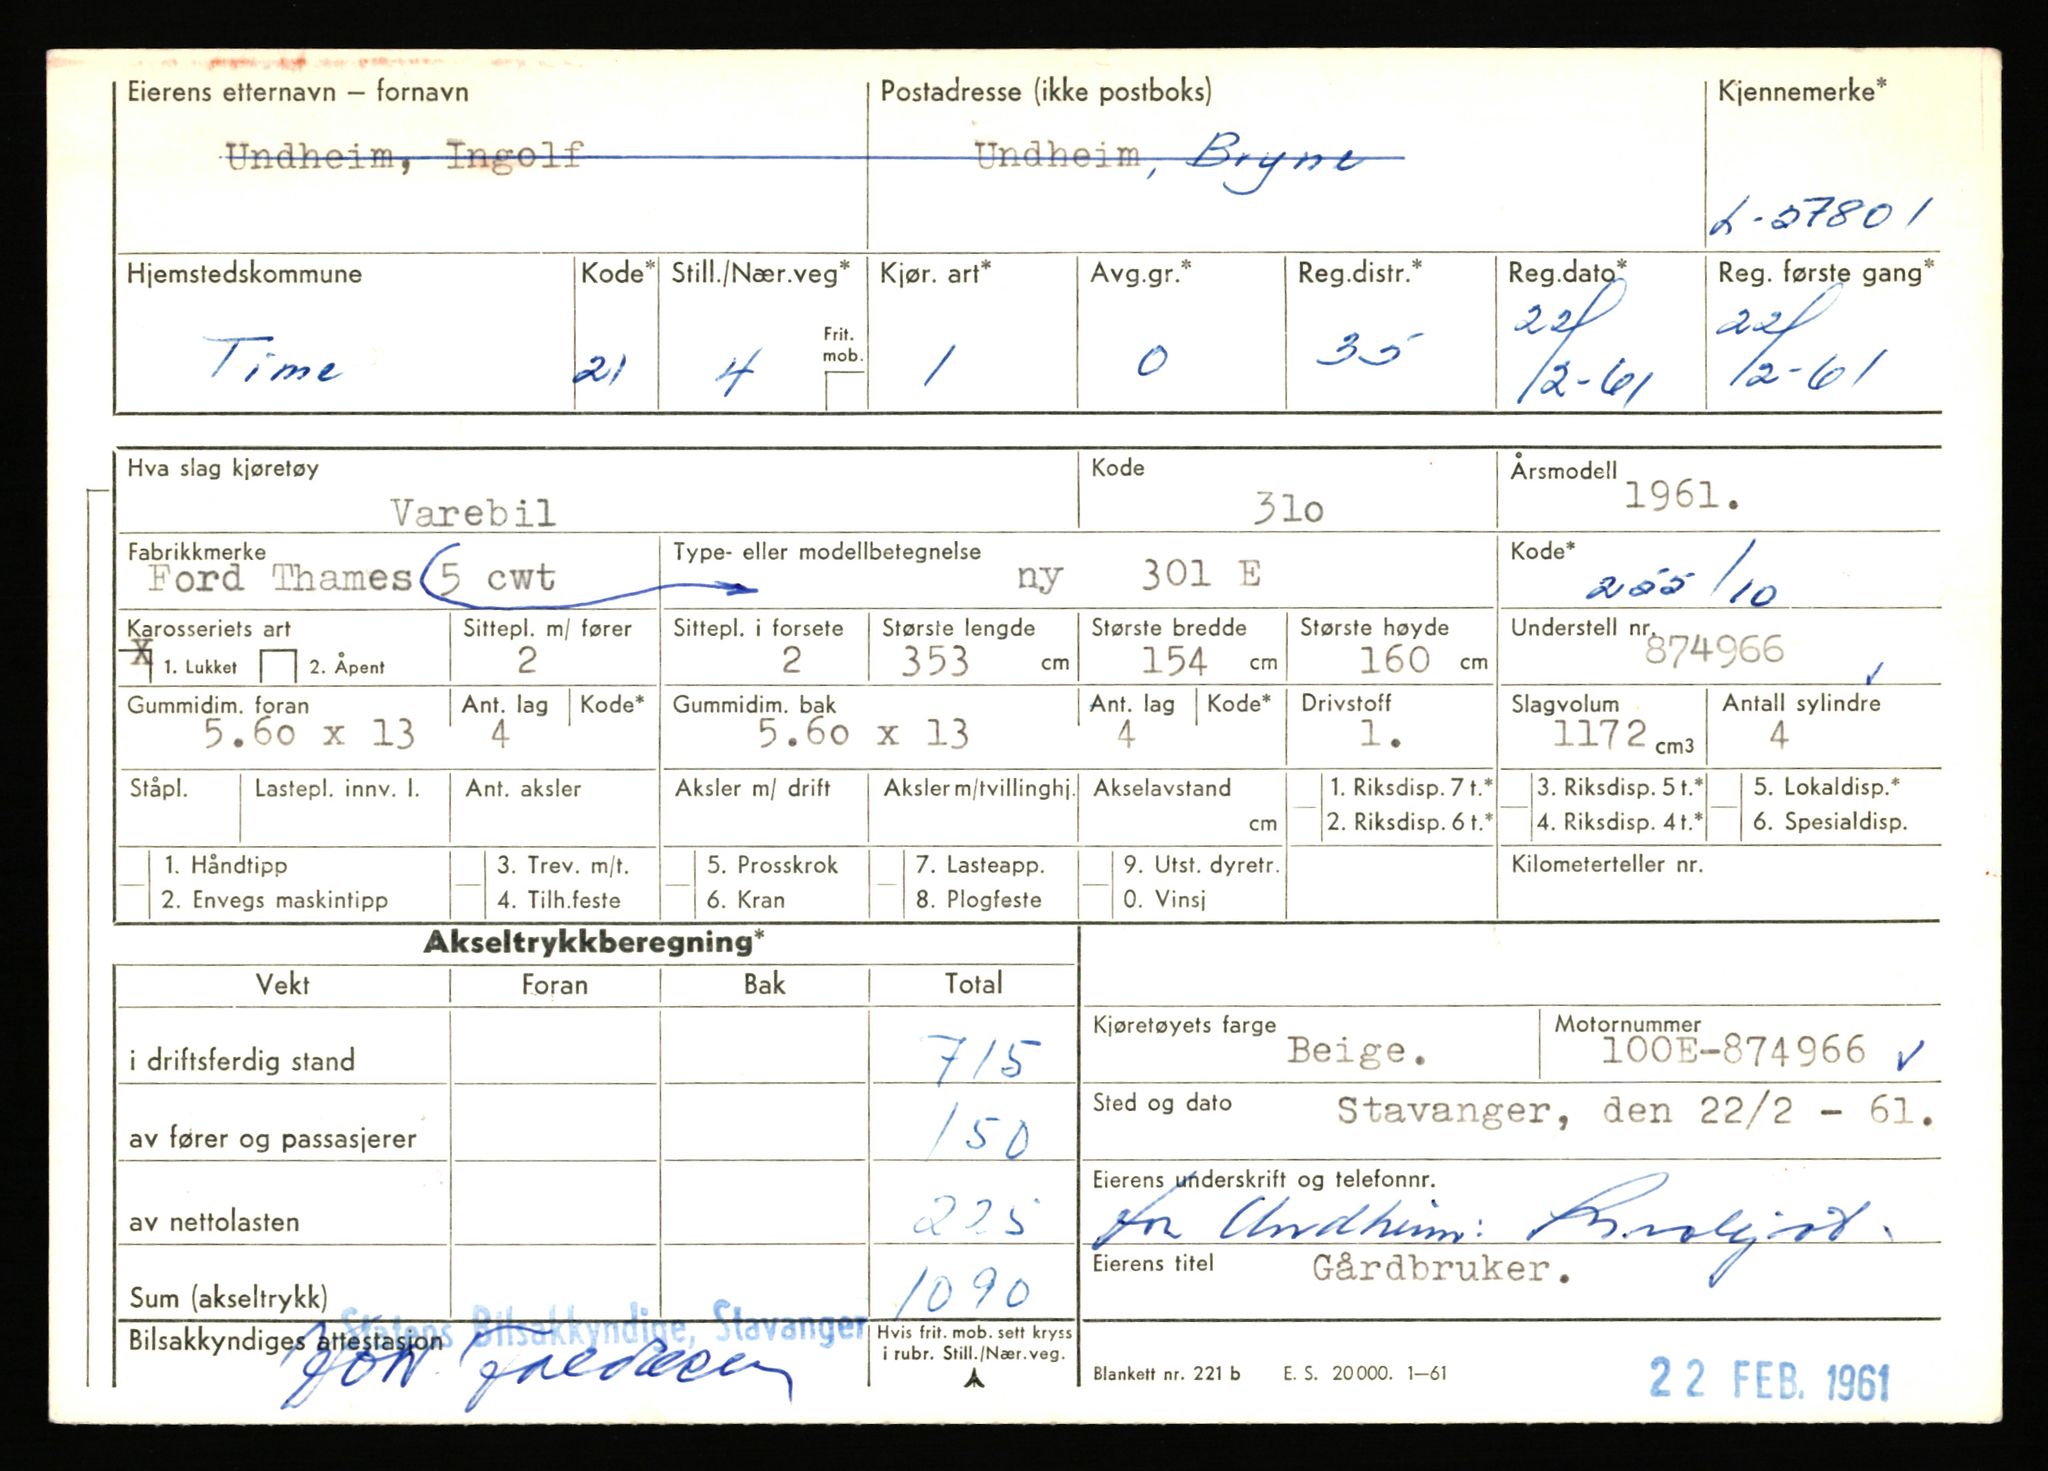 Eierens etternavn – fornavn Postadresse (ikke postboks) Kjennemerke*
Undheim, Ingolf Undheim, Bryne
L-57801
Hjemstedskommune Kode* Still./Nær.veg* Kjør. art* Avg.gr.* Reg.distr.* Reg.dato* Reg. første gang*
Frit. mob.
Time 21 4 1 0 35 22/2-61 22/2-61
Hva slag kjøretøy Kode Årsmodell
Varebil 31o 1961.
Fabrikkmerke Type- eller modellbetegnelse Kode*
Ford Thames (5 cwt ny 301 E 255/10
Karosseriets art Sittepl. m/ fører Sittepl. i forsete Største lengde Største bredde Største høyde Understell nr.
X 1. Lukket 2. Åpent 2 2 353 cm 154 cm 160 cm 874966
Gummidim. foran Ant. lag Kode* Gummidim. bak Ant. lag Kode* Drivstoff Slagvolum Antall sylindre
5.6o x 13 4 5.6o x 13 4 1. 1172 cm3 4
Ståpl. Lastepl. innv. l. Ant. aksler Aksler m/ drift Aksler m/tvillinghj. Akselavstand 1. Riksdisp. 7 t.* 3. Riksdisp. 5 t.* 5. Lokaldisp.*
cm 2. Riksdisp. 6 t.* 4. Riksdisp. 4 t.* 6. Spesialdisp.
1. Håndtipp 3. Trev. m/t. 5. Prosskrok 7. Lasteapp. 9. Utst. dyretr. Kilometerteller nr.
2. Envegs maskintipp 4. Tilh.feste 6. Kran 8. Plogfeste 0. Vinsj
Akseltrykkberegning*
Vekt Foran Bak Total
Kjøretøyets farge Motornummer
i driftsferdig stand 715 Beige. 100E-874966
Sted og dato Stavanger, den 22/2 - 61.
av fører og passasjerer 150
Eierens underskrift og telefonnr.
av nettolasten 225 for Undheim:
Eierens titel Gårdbruker.
Sum (akseltrykk) 1090
Statens Bilsakkyndige, Stavanger
Bilsakkyndiges attestasjon Hvis frit. mob. sett kryss
i rubr. Still./Nær.veg.
Blankett nr. 221 b E. S. 20000. 1–61
22 FEB. 1961